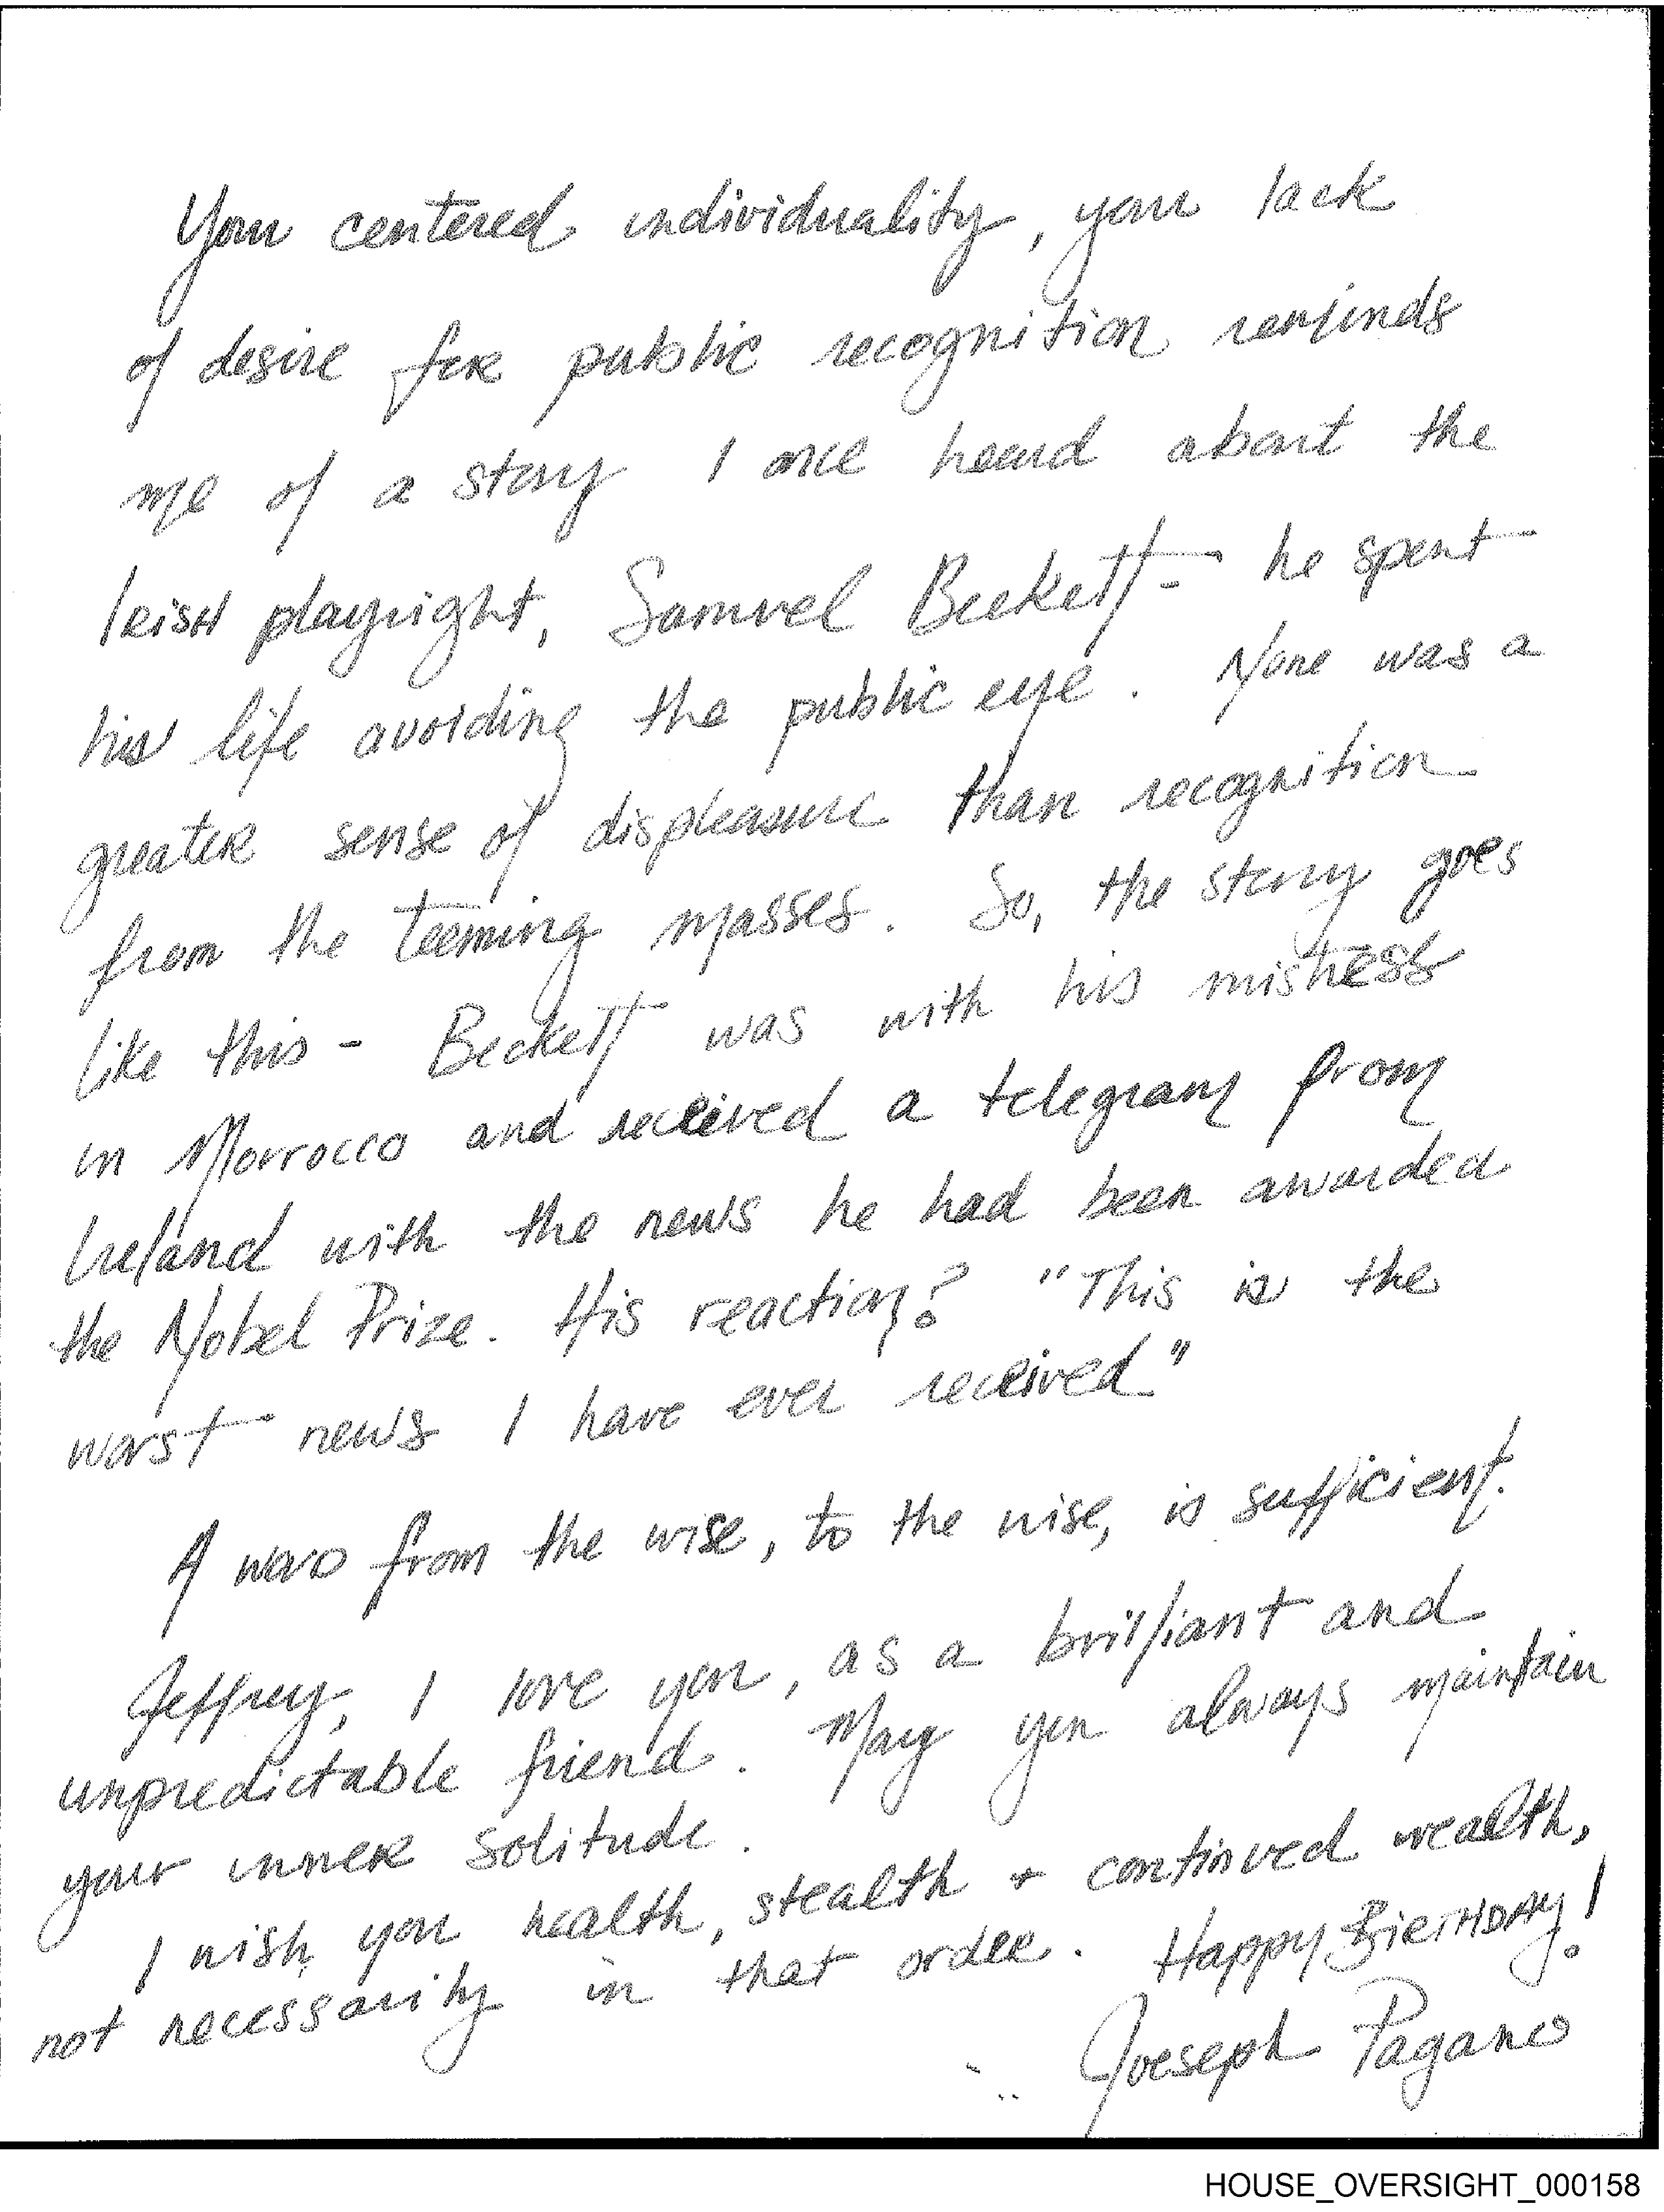 Your centered individuality, your lack
of desire for public recognition reminds
me of a story I once heard about the
Irish playright, Samuel Beckett - he spent
his life avoiding the public eye. None was a
greater sense of displeasure than recognition
from the teeming masses. So, the story goes
like this - Beckett was with his mistress
in Morrocco and received a telegram from
Ireland with the news he had been awarded
the Nobel Prize. His reaction? "This is the
worst news I have ever received"
A word from the wise, to the wise, is sufficient.
Jeffrey, I love you, as a brilliant and
unpredictable friend. May you always maintain
your inner solitude.
I wish you health, stealth + continued wealth,
not necessarily in that order. Happy Birthday!
Joeseph Pagano
HOUSE_OVERSIGHT_000158